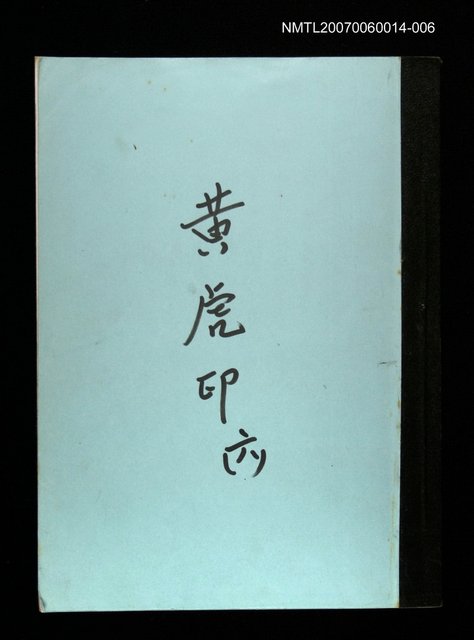 NMTL20070060014-006
黃虎印
(六)